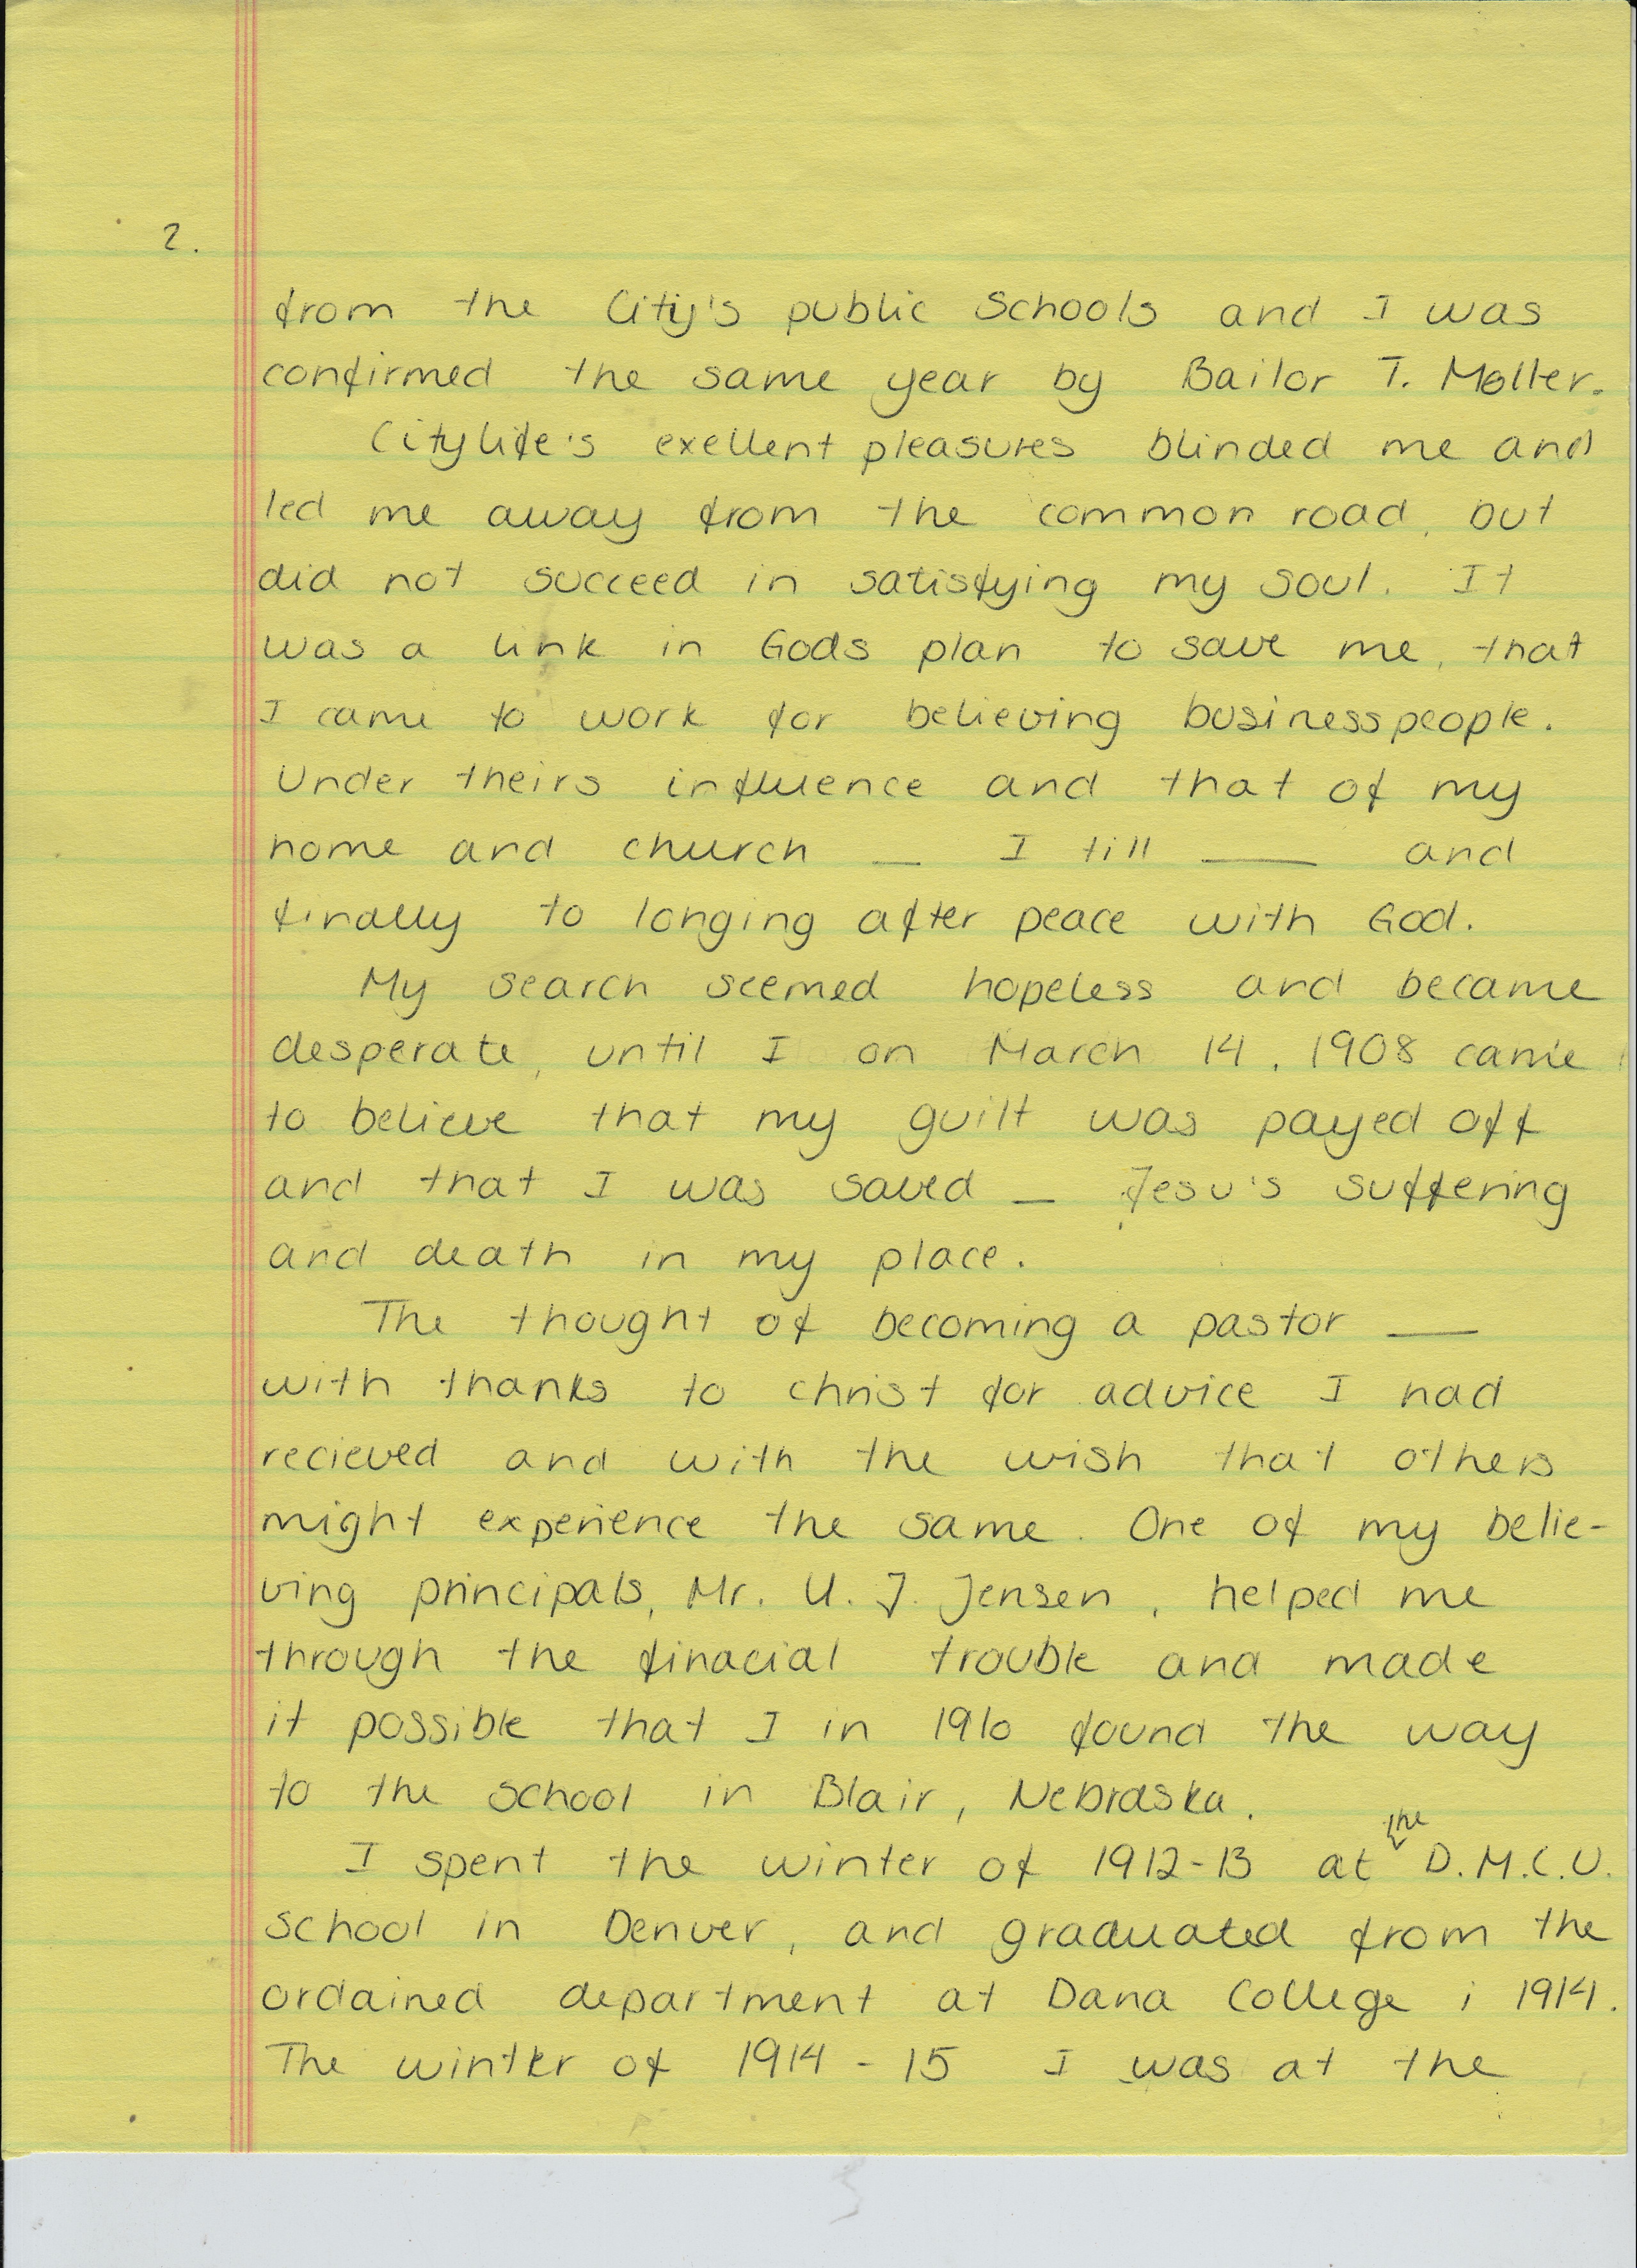 2.
from the City's public Schools and I was
confirmed the same year by Bailor T. Møller.
Citylife's exellent pleasures blinded me and
led me away from the common road, but
did not succeed in satisfying my soul. It
was a link in Gods plan to save me, that
I came to work for believing businesspeople.
Under theirs influence and that of my
home and church __ I till ____ and
finally to longing after peace with God.
My search seemed hopeless and became
desperate, until I on March 14, 1908 came
to believe that my guilt was payed off
and that I was saved __ Jesu's suffering
and death in my place.
The thought of becoming a pastor ___
with thanks to christ for advice I had
recieved and with the wish that others
might experience the same. One of my belie-
ving principals, Mr. U. J. Jensen, helped me
through the finacial trouble and made
it possible that I in 1910 found the way
to the school in Blair, Nebraska.
I spent the winter of 1912-13 at the D.M.C.U.
school in Denver, and graduated from the
ordained department at Dana College i 1914.
The winter of 1914 - 15 I was at the